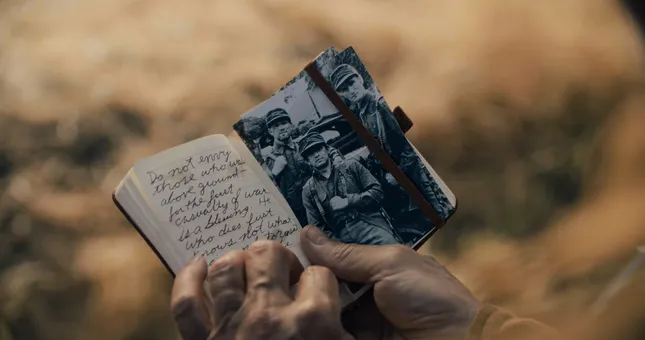 Do not envy
those who walk
above ground—
for the first
casualty of war
is a blessing. He
who dies first
knows not what